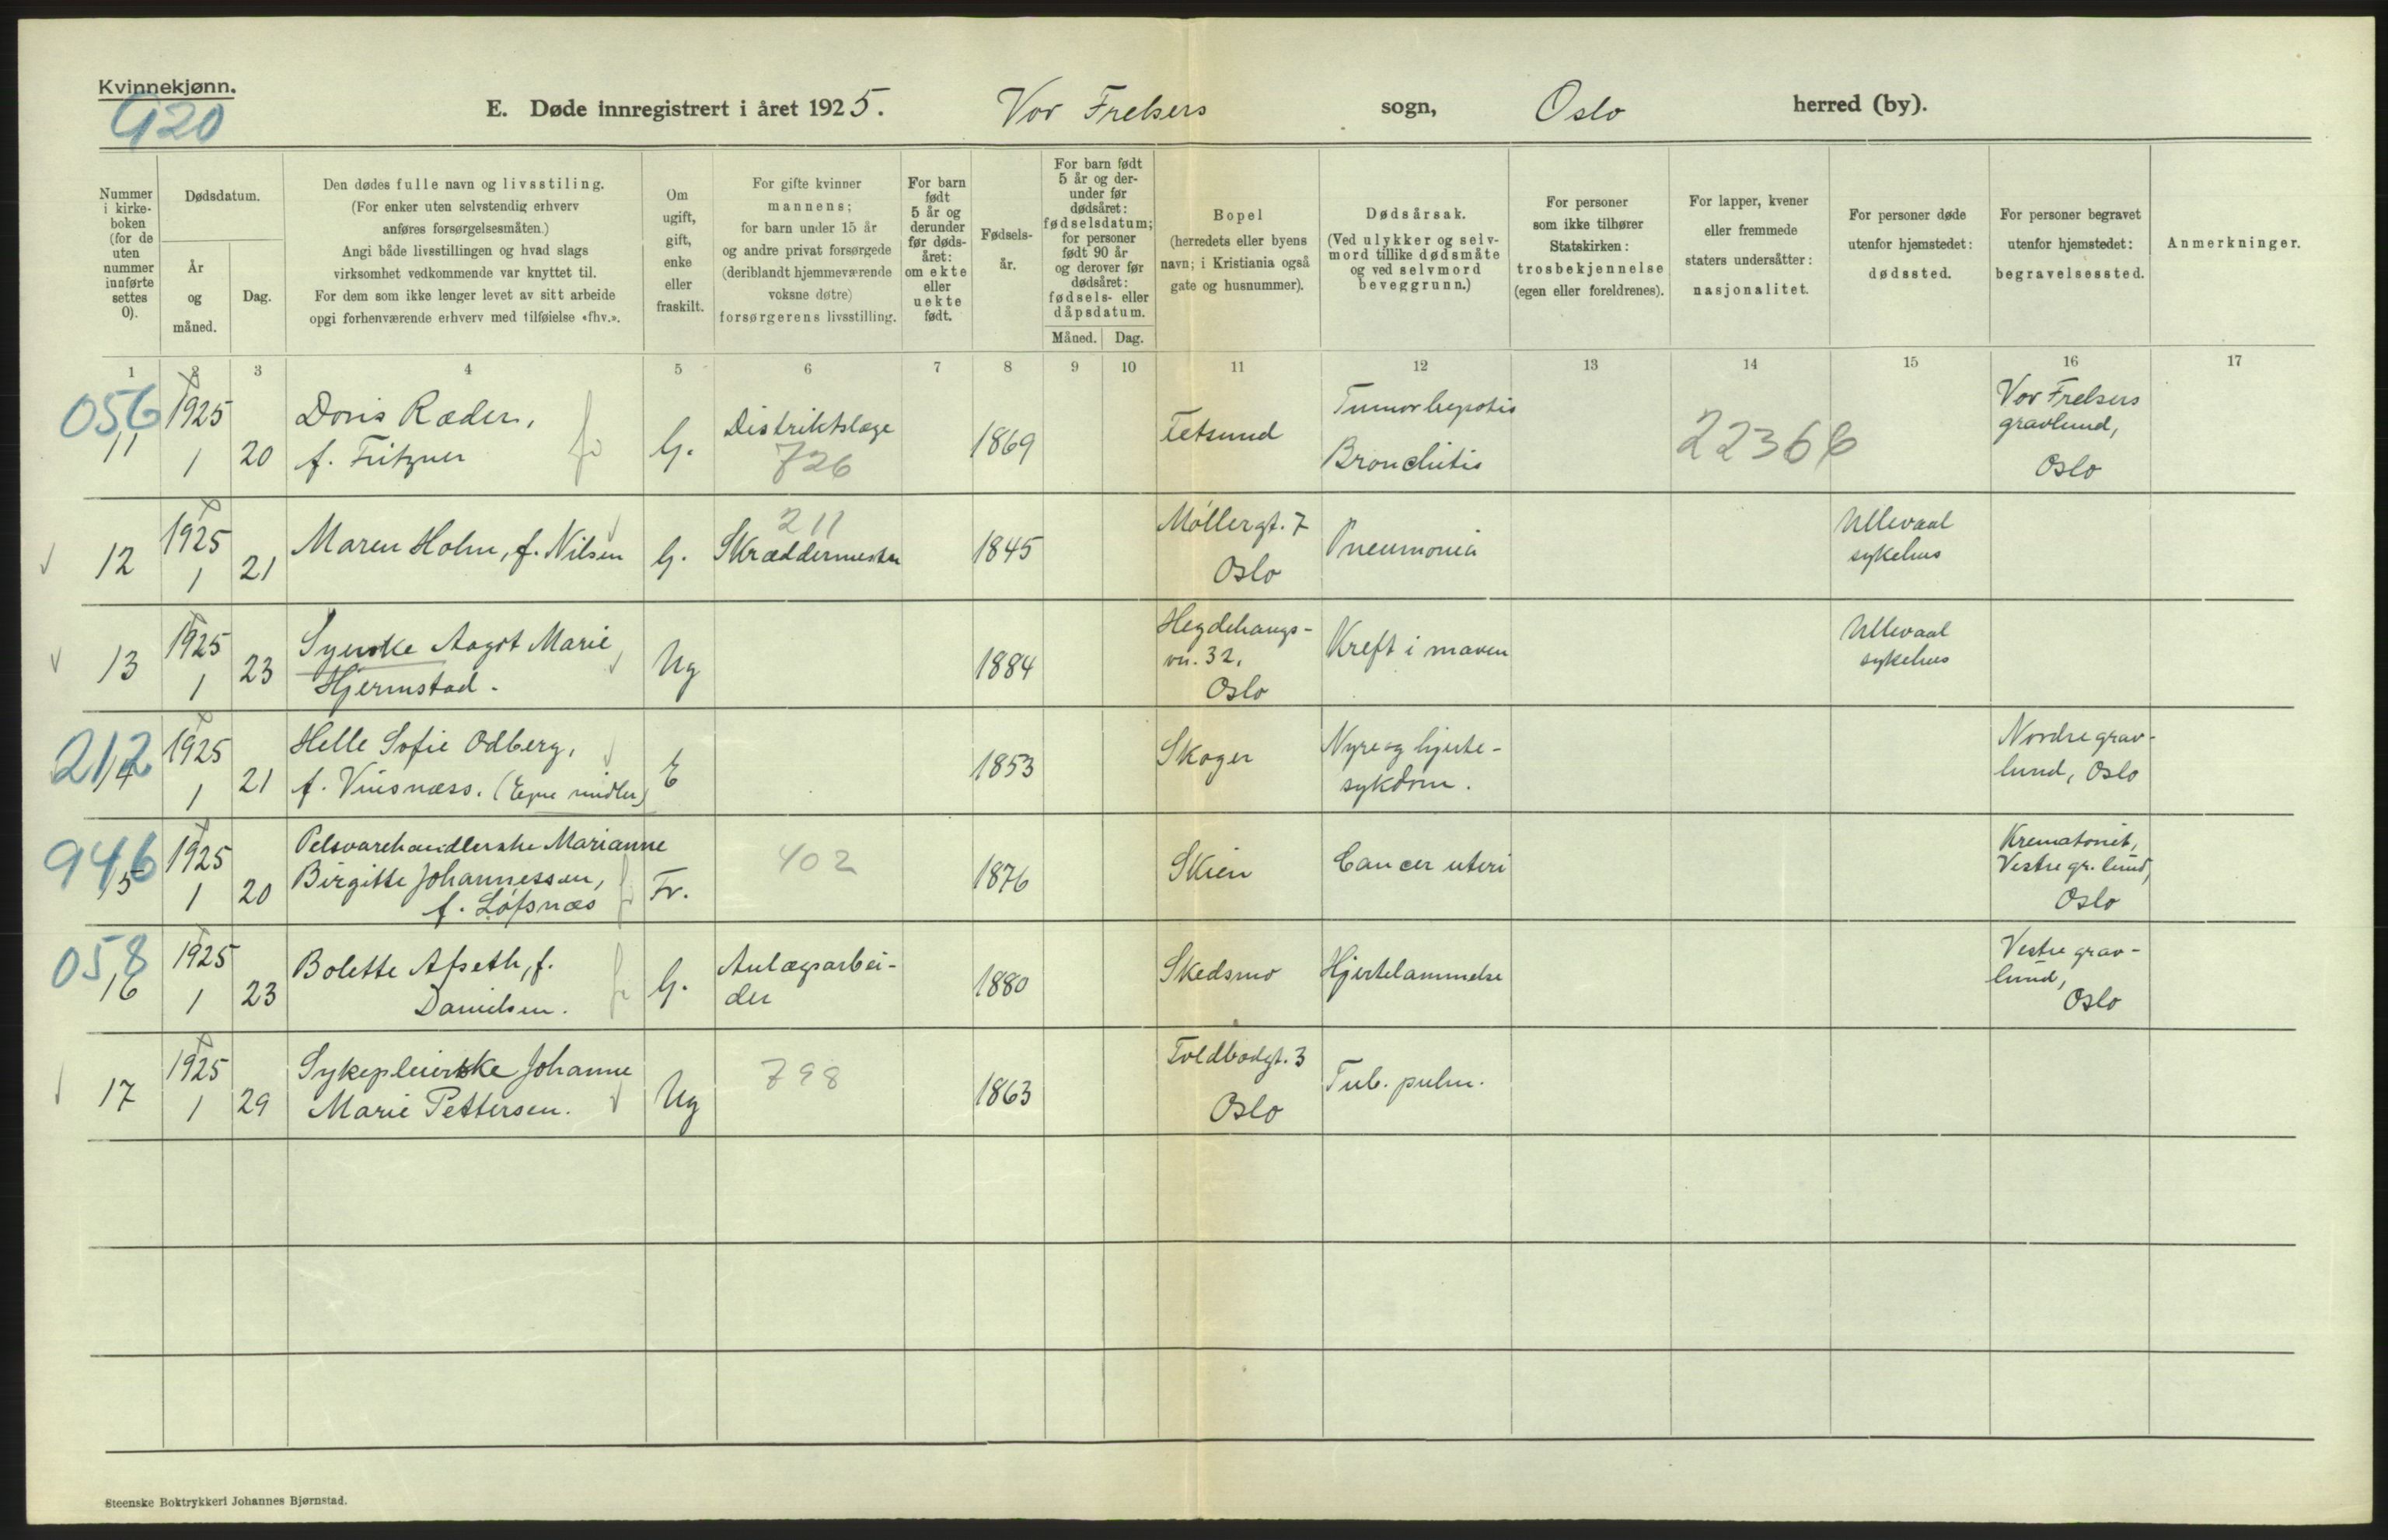 Kvinnekjønn.
920
E. Døde innregistrert i året 1925. Vor Frelsers sogn, Oslo herred (by).
Nummer i kirke-boken (for de uten nummer innførte settes 0).
Dødsdatum.
År og måned.
Dag.
Den dødes fulle navn og livsstiling.
(For enker uten selvstendig erhverv
anføres forsørgelsesmåten.)
Angi både livsstillingen og hvad slags
virksomhet vedkommende var knyttet til.
For dem som ikke lenger levet av sitt arbeide
opgi forhenværende erhverv med tilføielse «fhv.».
Om ugift, gift, enke eller fraskilt.
For gifte kvinner
mannens;
for barn under 15 år
og andre privat forsørgede
(deriblandt hjemmeværende
voksne døtre)
forsørgerens livsstilling.
For barn født 5 år og derunder før døds-året: om ekte eller uekte født.
Fødsels-år.
For barn født 5 år og der-under før dødsåret: fødselsdatum; for personer født 90 år og derover før dødsåret: fødsels- eller dåpsdatum.
Måned. Dag.
Bopel
(herredets eller byens
navn; i Kristiania også
gate og husnummer).
Dødsårsak.
(Ved ulykker og selv-
mord tillike dødsmåte
og ved selvmord
beveggrunn.)
For personer
som ikke tilhører
Statskirken:
trosbekjennelse
(egen eller foreldrenes).
For lapper, kvener
eller fremmede
staters undersåtter:
nasjonalitet.
For personer døde
utenfor hjemstedet:
dødssted.
For personer begravet
utenfor hjemstedet:
begravelsessted.
Anmerkninger.
1 2 3 4 5 6 7 8 9 10 11 12 13 14 15 16 17
056
11 1925 1 20
Doris Ræder,
f. Fritzner
G. Distriktslæge
726
1869 Fetsund
Tumor hepatis
Bronchitis
22366
Vor Frelsers
gravlund,
Oslo
12 1925 1 21
Maren Holm, f. Nilsen
G. 211
Skræddermester
1845
Møllergt. 7
Oslo
Pneumonia
Ullevaal
sykehus
13 1925 1 23
Syerske Aagot Marie
Hjermstad.
Ug 1884
Hegdehaugs-
vn. 32,
Oslo
Kreft i maven
Ullevaal
sykehus
212
14 1925 1 21
Helle Sofie Odberg,
f. Vinsnæss. (Egne midler)
E 1853 Skoger
Nyre og hjerte-
sykdom.
Nordre grav-
lund, Oslo
946
15 1925 1 20
Pelsvarehandlerske Marianne
Birgitte Johannessen,
f. Løfsnæs
Fr. 402 1876 Skien
Cancer uteri
Krematoriet,
Vestre gr. lund,
Oslo
058
16 1925 1 23
Bolette Afseth, f.
Danielsen.
G. Anlægsarbei-
der
1880 Skedsmo
Hjertelammelse
Vestre grav-
lund,
Oslo
17 1925 1 29
Sykepleierske Johanne
Marie Pettersen.
Ug 798 1863
Toldbodgt. 3
Oslo
Tub. pulm.
Steenske Boktrykkeri Johannes Bjørnstad.